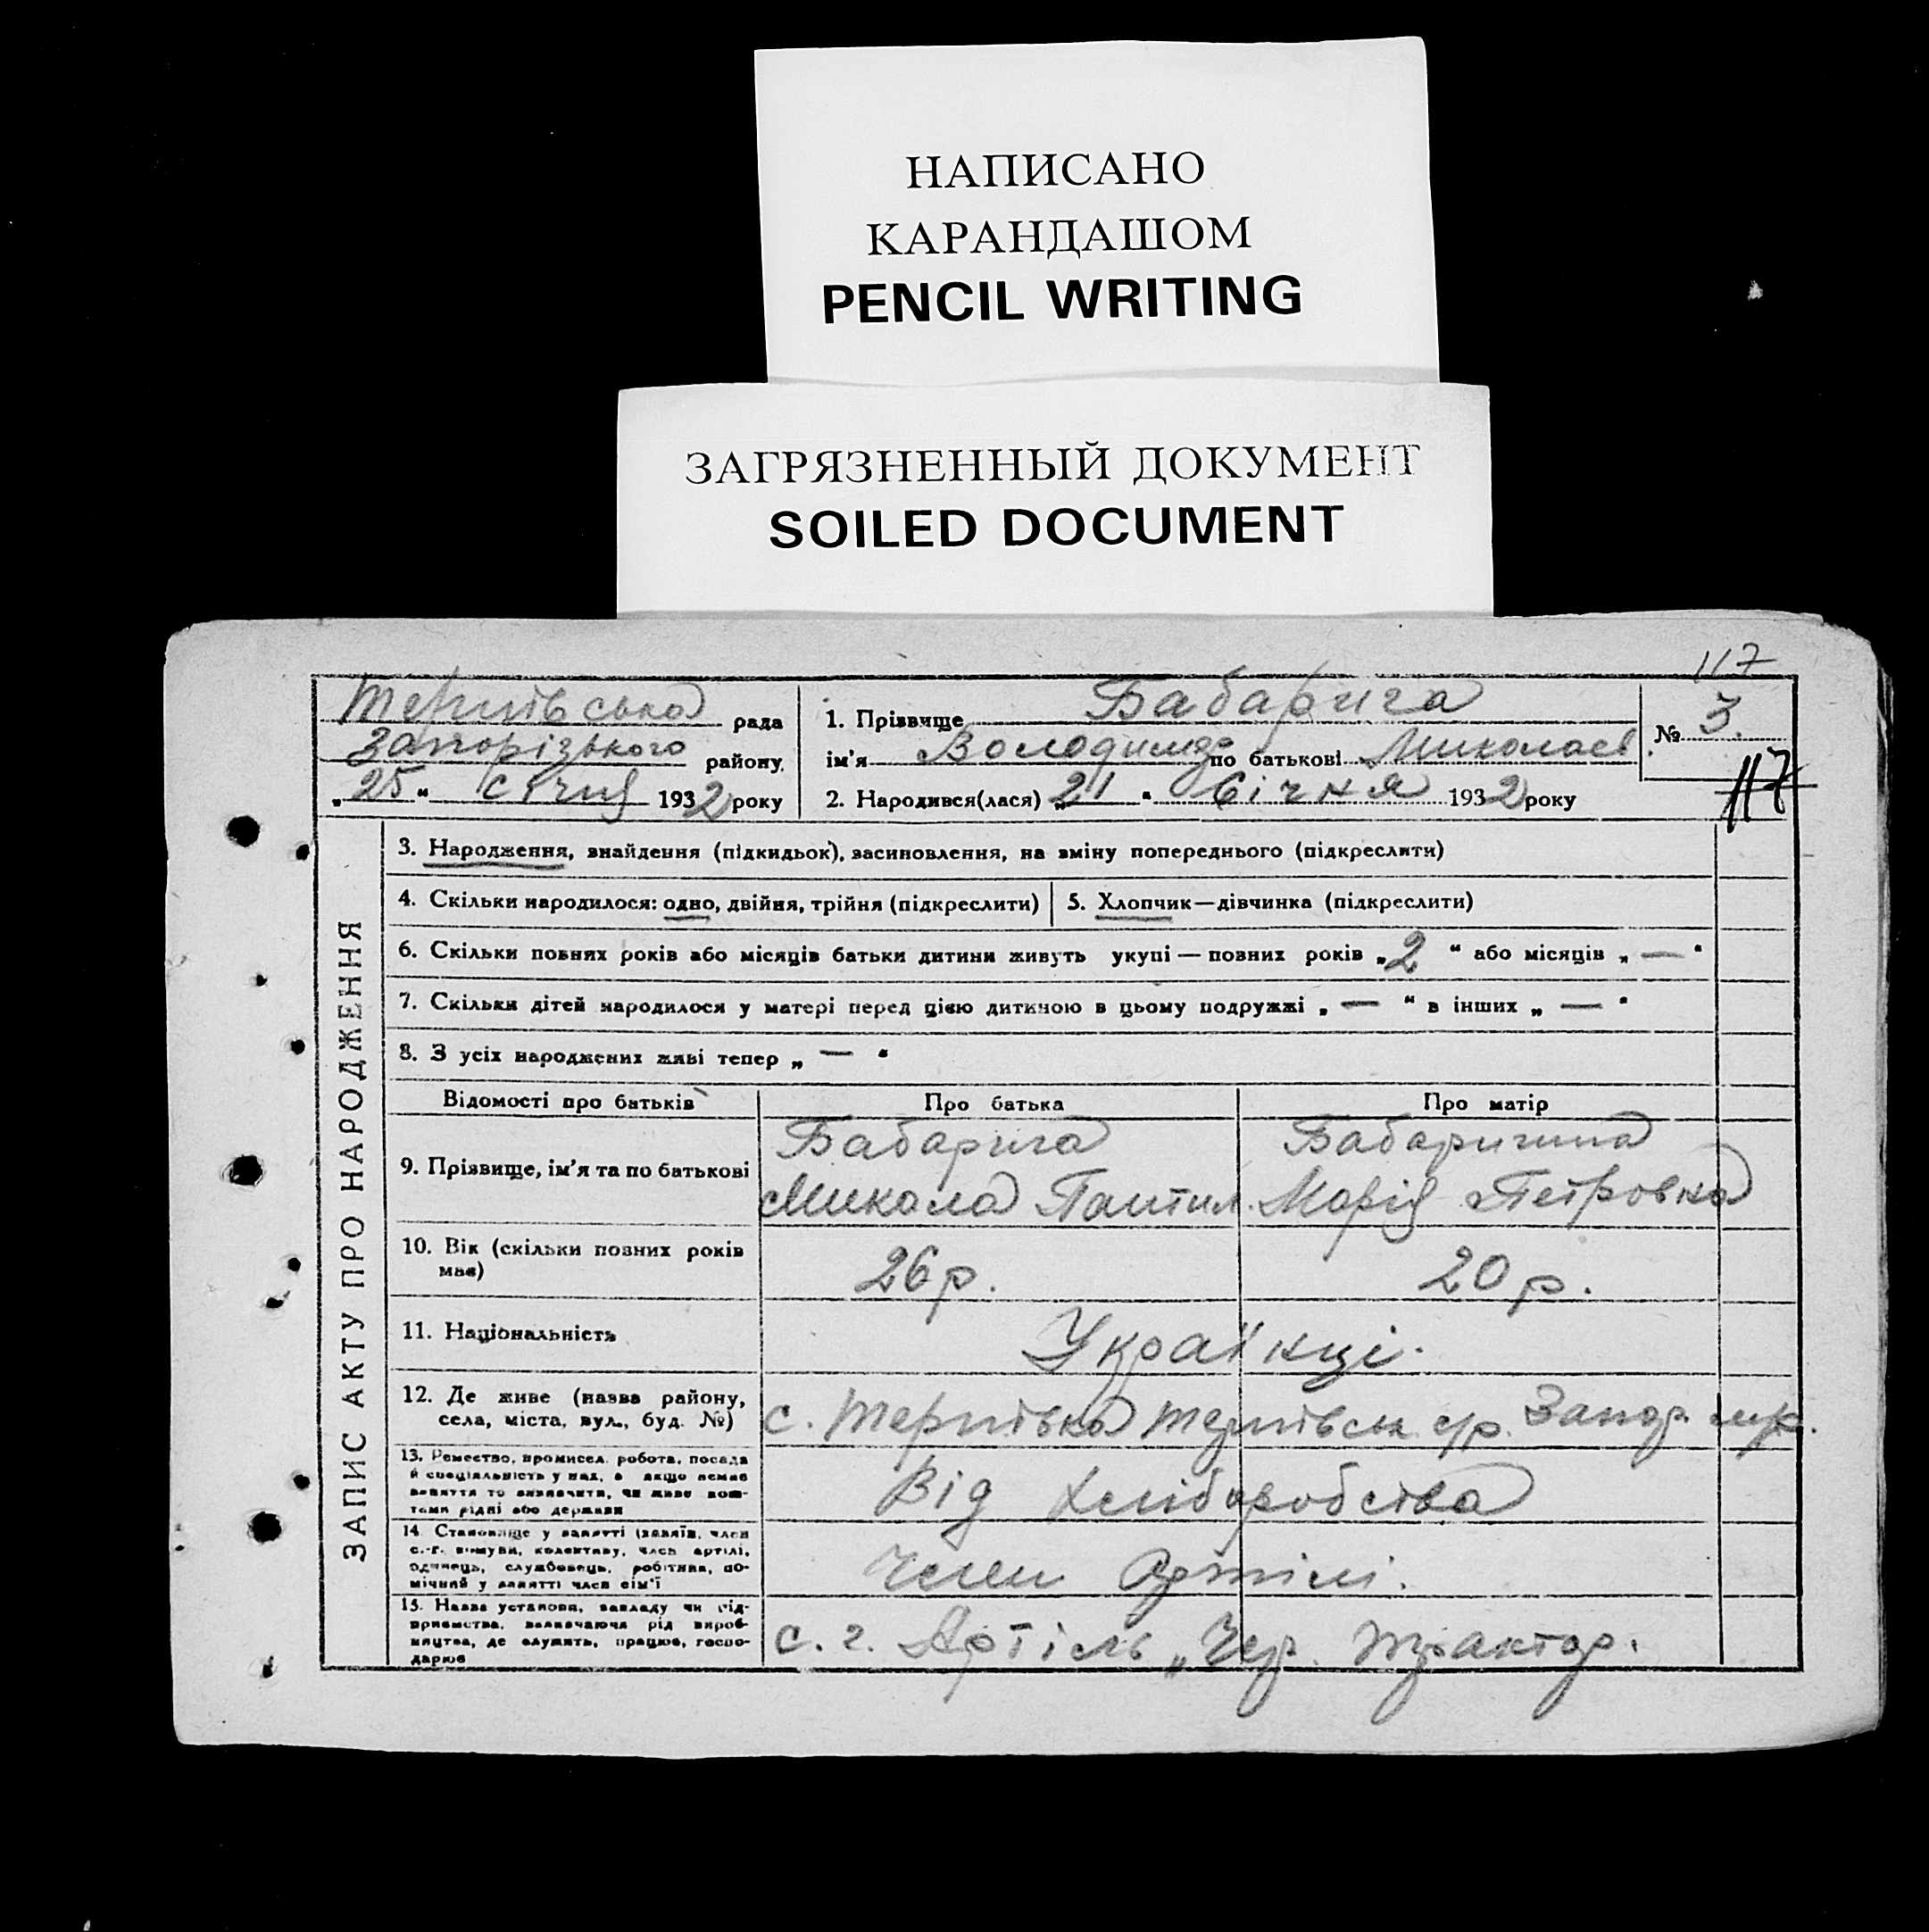 НАПИСАНО
КАРАНДАШОМ
PENCIL WRITING
ЗАГРЯЗНЕННЫЙ ДОКУМЕНТ
SOILED DOCUMENT
117
Терпівська рада
Запорізького району.
„25“ січня 1932 року
1. Прізвище Бабарига
ім'я Володимир по батькові Миколаєв
2. Народився(лася) „21“ Січня 1932 року
№ 3.
117
ЗАПИС АКТУ ПРО НАРОДЖЕННЯ
3. Народження, знайдення (підкидьок), засиновлення, на зміну попереднього (підкреслити)
4. Скільки народилося: одно, двійня, трійня (підкреслити)
5. Хлопчик—дівчинка (підкреслити)
6. Скільки повних років або місяців батьки дитини живуть укупі — повних років „2“ або місяців „—“
7. Скільки дітей народилося у матері перед цією дитиною в цьому подружжі „—“ в інших „—“
8. З усіх народжених живі тепер „—“
Відомості про батьків
Про батька
Про матір
9. Прізвище, ім'я та по батькові
Бабарига
Микола Пантил.
Бабаригина
Марія Петровна
10. Вік (скільки повних років
має)
26 р.
20 р.
11. Національність
Українці.
12. Де живе (назва району,
села, міста, вул., буд. №)
с. Терпівка Терпівськ с/р. Запор.
13. Ремество, промисел, робота, посада
й спеціяльність у них, а якщо немає
заняття то визначити, чи живе кош-
тами рідні або держави
Від Хліборобства
14. Становище у занятті (хазяїн, член
с.-г. комуни, колективу, член артілі,
одинець, службовець, робітник, по-
мічний у занятті член сім'ї
Член Артілі.
15. Назва установи, закладу чи під-
приємства, зазначаючи рід вироб-
ництва, де служить, працює, госпо-
дарює
с. г. Артіль „Чер. Трактор.